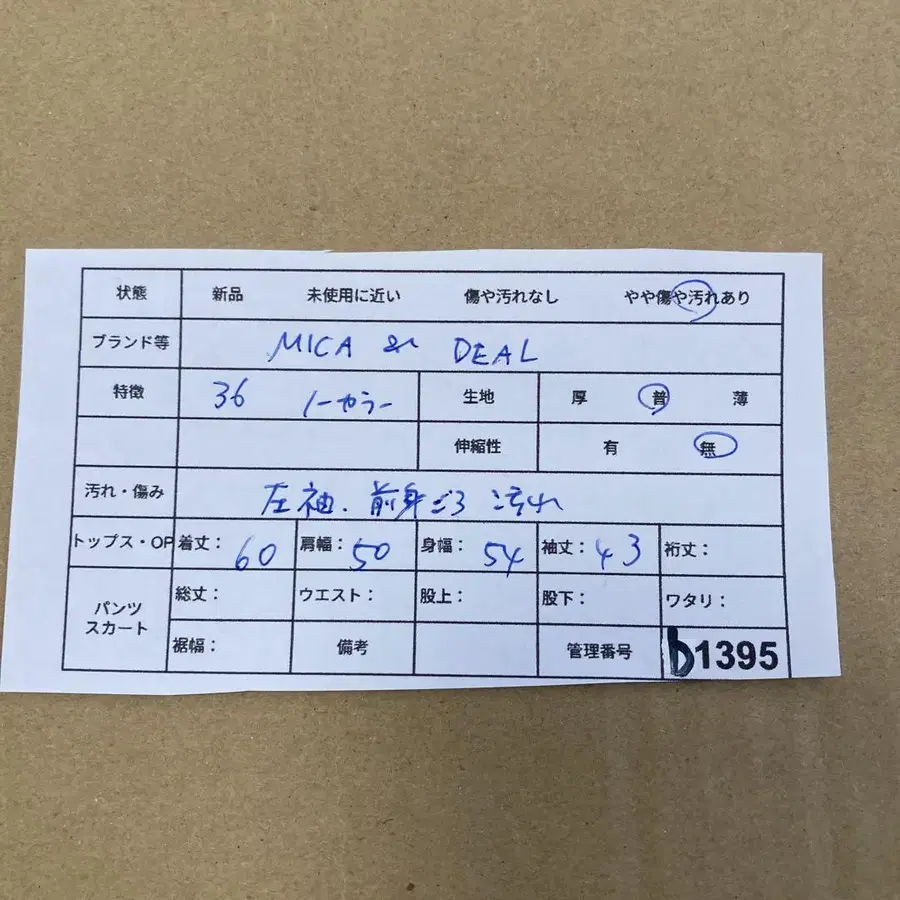 状態 新品 未使用に近い 傷や汚れなし やや傷や汚れあり
ブランド等 MICA & DEAL
特徴 36 ノーカラー 生地 厚 普 薄
伸縮性 有 無
汚れ・傷み 左袖、前身ごろ 汚れ
トップス・OP 着丈：60 肩幅：50 身幅：54 袖丈：43 裄丈：
パンツ スカート 総丈： ウエスト： 股上： 股下： ワタリ：
裾幅： 備考 管理番号 b1395